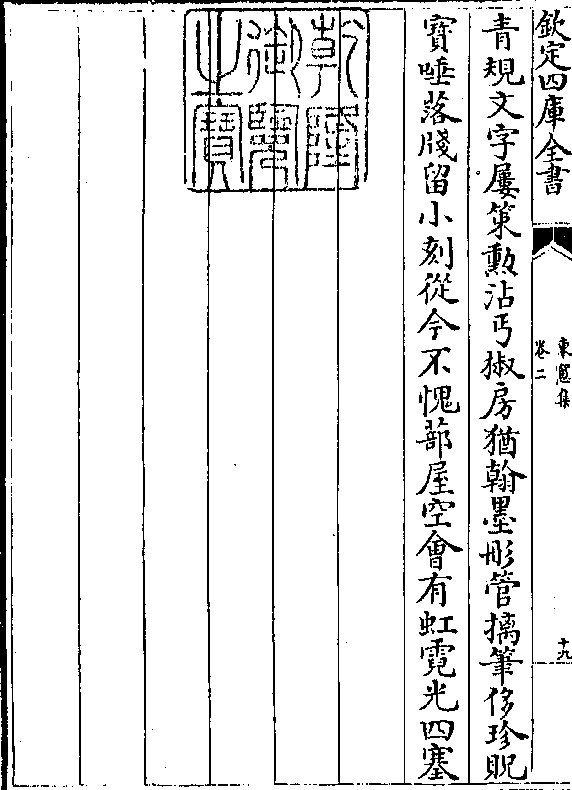 欽定四庫全書
東窻集
卷二
十九
青規文字屢策勲沾丐椒房猶翰墨彤管摛筆侈珍貺
寳唾落牋留小刻從今不愧蔀屋空會有虹霓光四塞
乾隆
御覽
之寶